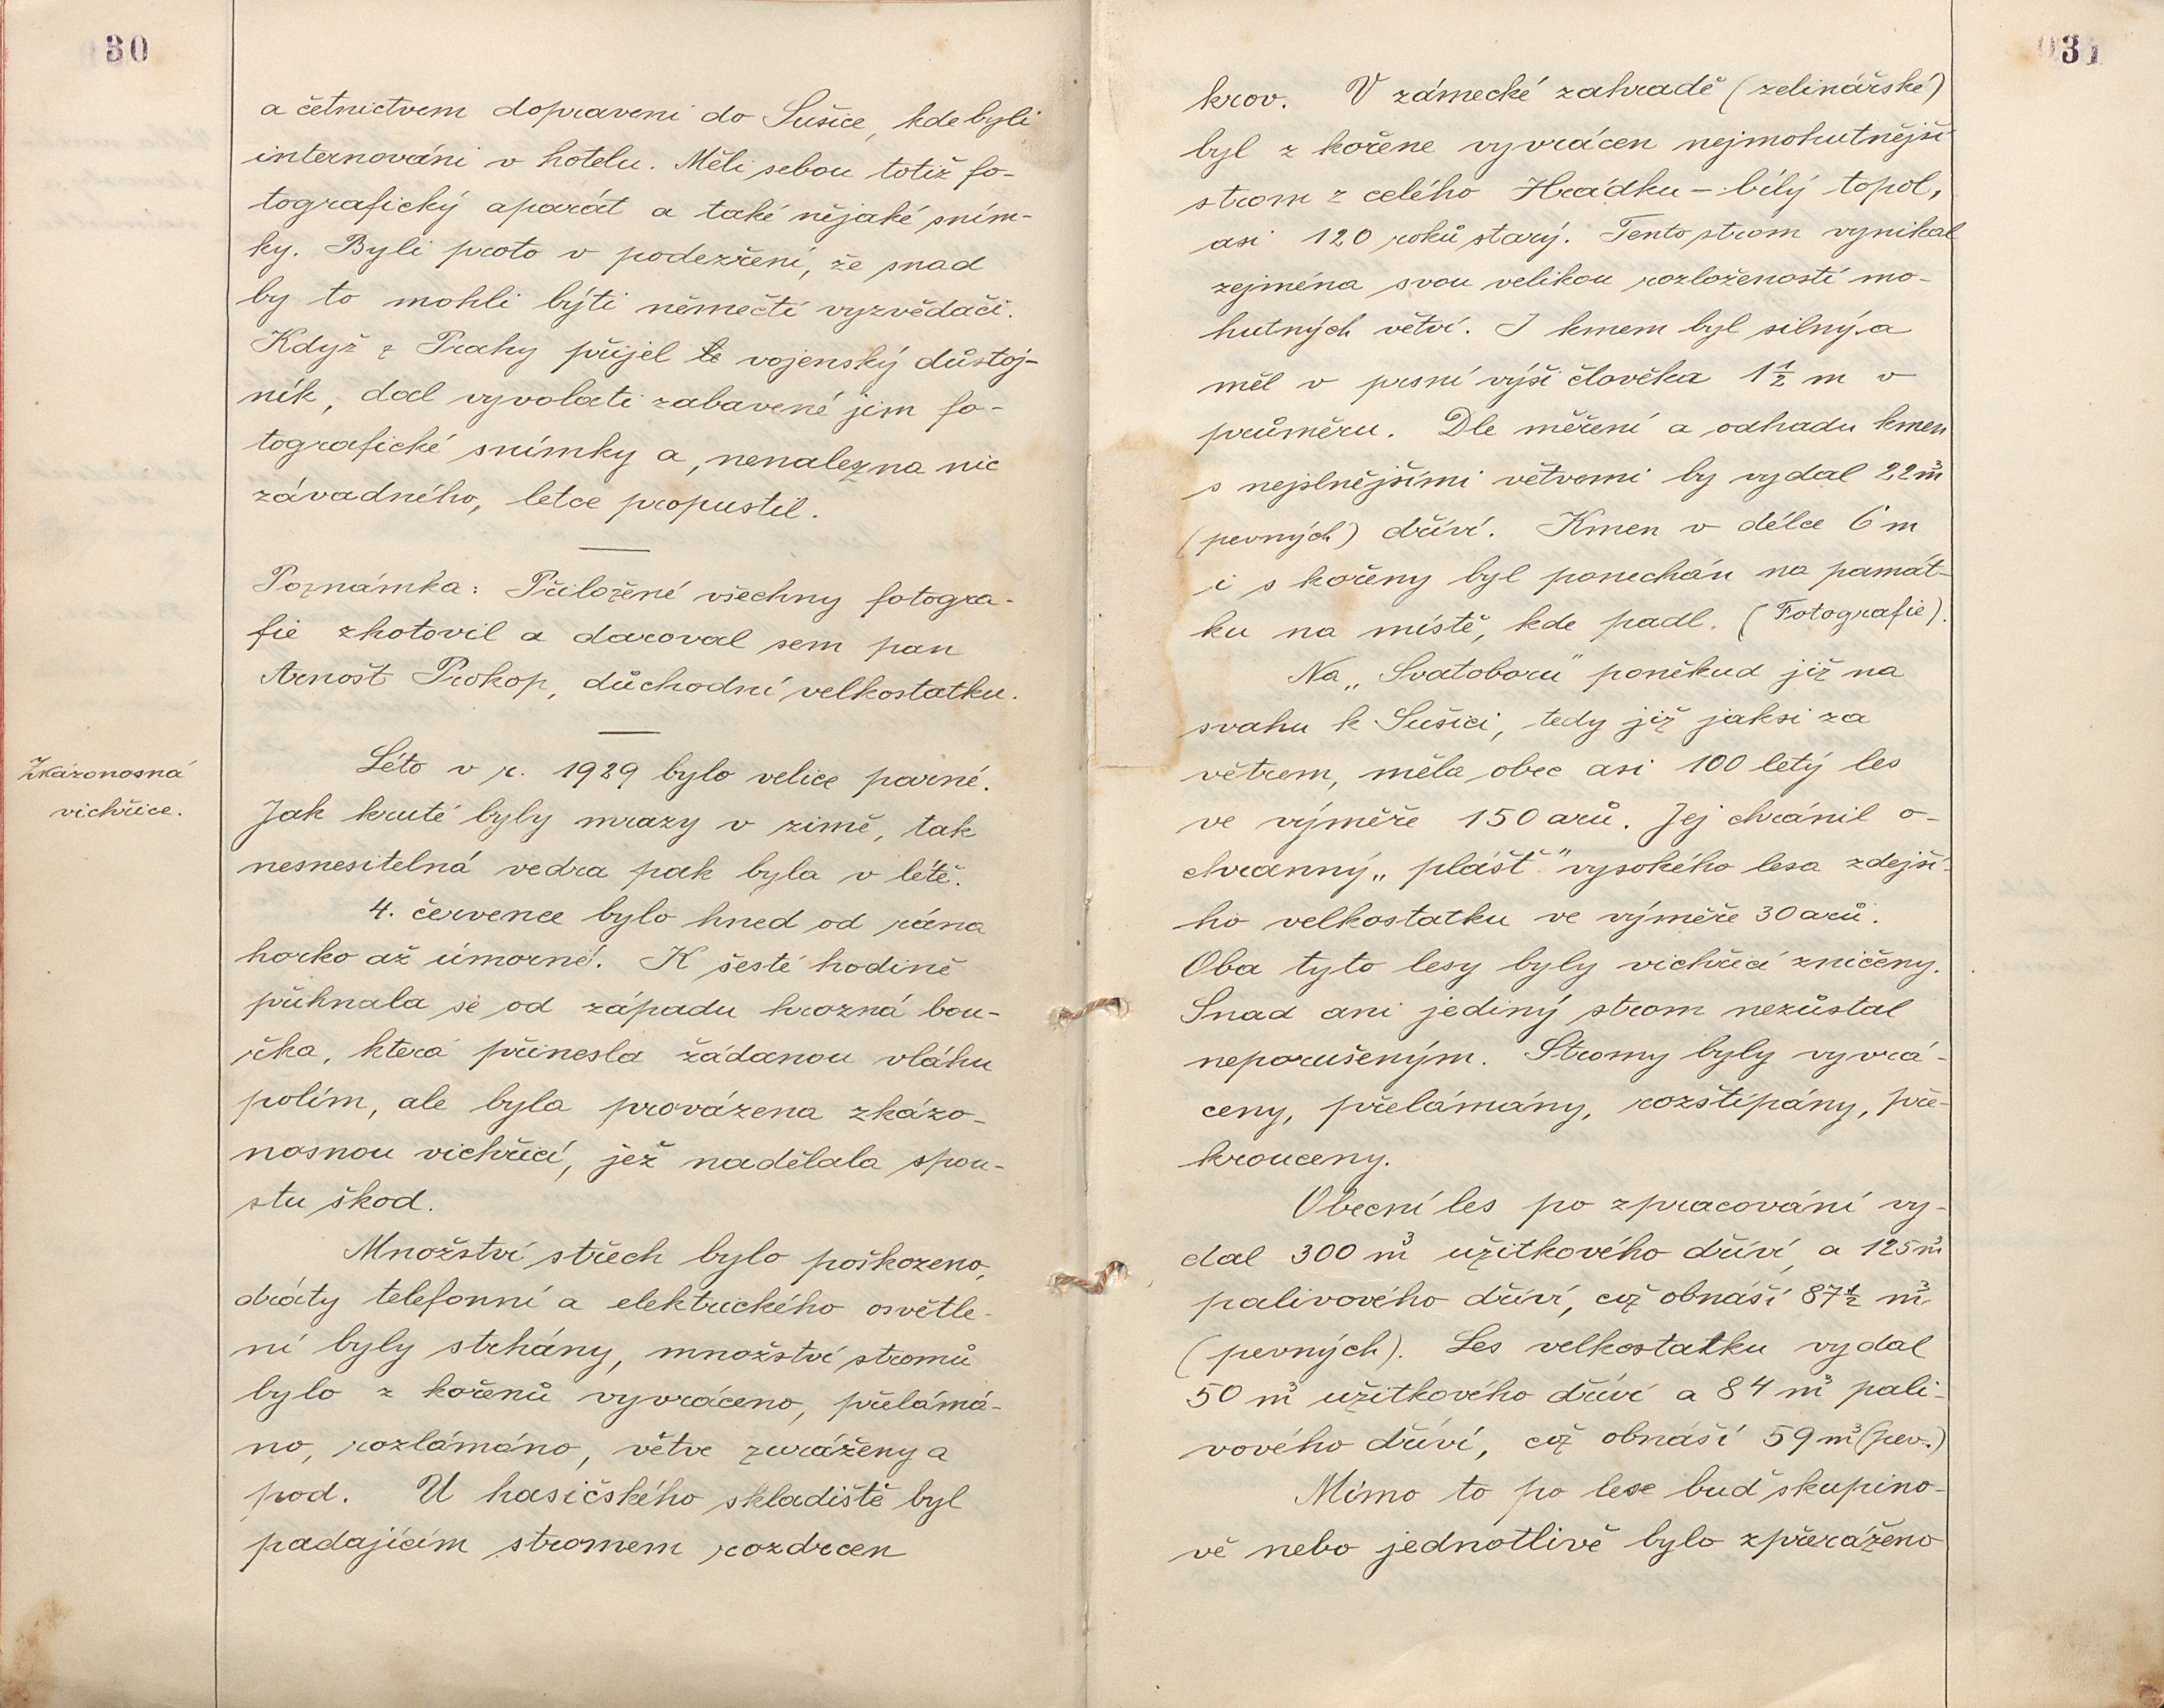 30
a četnictvem dopraveni do Sušice, kde byli
internováni v hotelu. Měli sebou totiž fo-
tografický aparát a také nějaké sním-
ky. Byli proto v podezření, že snad
by to mohli býti němečtí vyzvědači.
Když z Prahy přijel vojenský důstoj-
ník, dal vyvolati zabavené jim fo-
tografické snímky a, nenalezna nic
závadného, letce propustil.
Poznámka: Přiložené všechny fotogra-
fie zhotovil a daroval sem pan
Arnošt Prokop, důchodní velkostatku.
Zkázonosná
vichřice.
Léto v r. 1929 bylo velice parné.
Jak kruté byly mrazy v zimě, tak
nesnesitelná vedra pak byla v létě.
4. července bylo hned od rána
horko až úmorné. K šesté hodině
přihnala se od západu hrozná bou-
řka, která přinesla žádanou vláhu
polím, ale byla provázena zkázo-
nosnou vichřicí, jež nadělala spou-
stu škod.
Množství střech bylo poškozeno,
dráty telefonní a elektrického osvětle-
ní byly strhány, množství stromů
bylo z kořenů vyvráceno, přelámá-
no, rozlámáno, větve zuráženy a
pod. U hasičského skladiště byl
padajícím stromem rozdrcen
031
krov. V zámecké zahradě (zelinářské)
byl z kořene vyvrácen nejmohutnější
strom z celého Hrádku – bílý topol,
asi 120 roků starý. Tento strom vynikal
zejména svou velikou rozložeností mo-
hutných větví. I kmem byl silný a
měl v prsní výši člověka 1½ m v
průměru. Dle měření a odhadu kmen
s nejslnějšími větvemi by vydal 22 m³
(pevných) dříví. Kmen v délce 6 m
i s kořeny byl ponechán na památ-
ku na místě, kde padl. (Fotografie).
Na „Svatoboru" poněkud již na
svahu k Sušici, tedy již jaksi za
větrem, měla obec asi 100 letý les
ve výměře 150 arů. Jej chránil o-
chranný „plášť" vysokého lesa zdejší-
ho velkostatku ve výměře 30 arů.
Oba tyto lesy byly vichřicí zničeny.
Snad ani jediný strom nezůstal
neporušeným. Stromy byly vyvrá-
ceny, přelámány, rozštípány, pře-
krouceny.
Obecní les po zpracování vy-
dal 300 m³ užitkového dříví a 125 m³
palivového dříví, což obnáší 87½ m³
(pevných). Les velkostatku vydal
50 m³ užitkového dříví a 84 m³ pali-
vového dříví, což obnáší 59 m³ (pev.)
Mimo to po lese buď skupino-
vě nebo jednotlivě bylo zpřeráženo